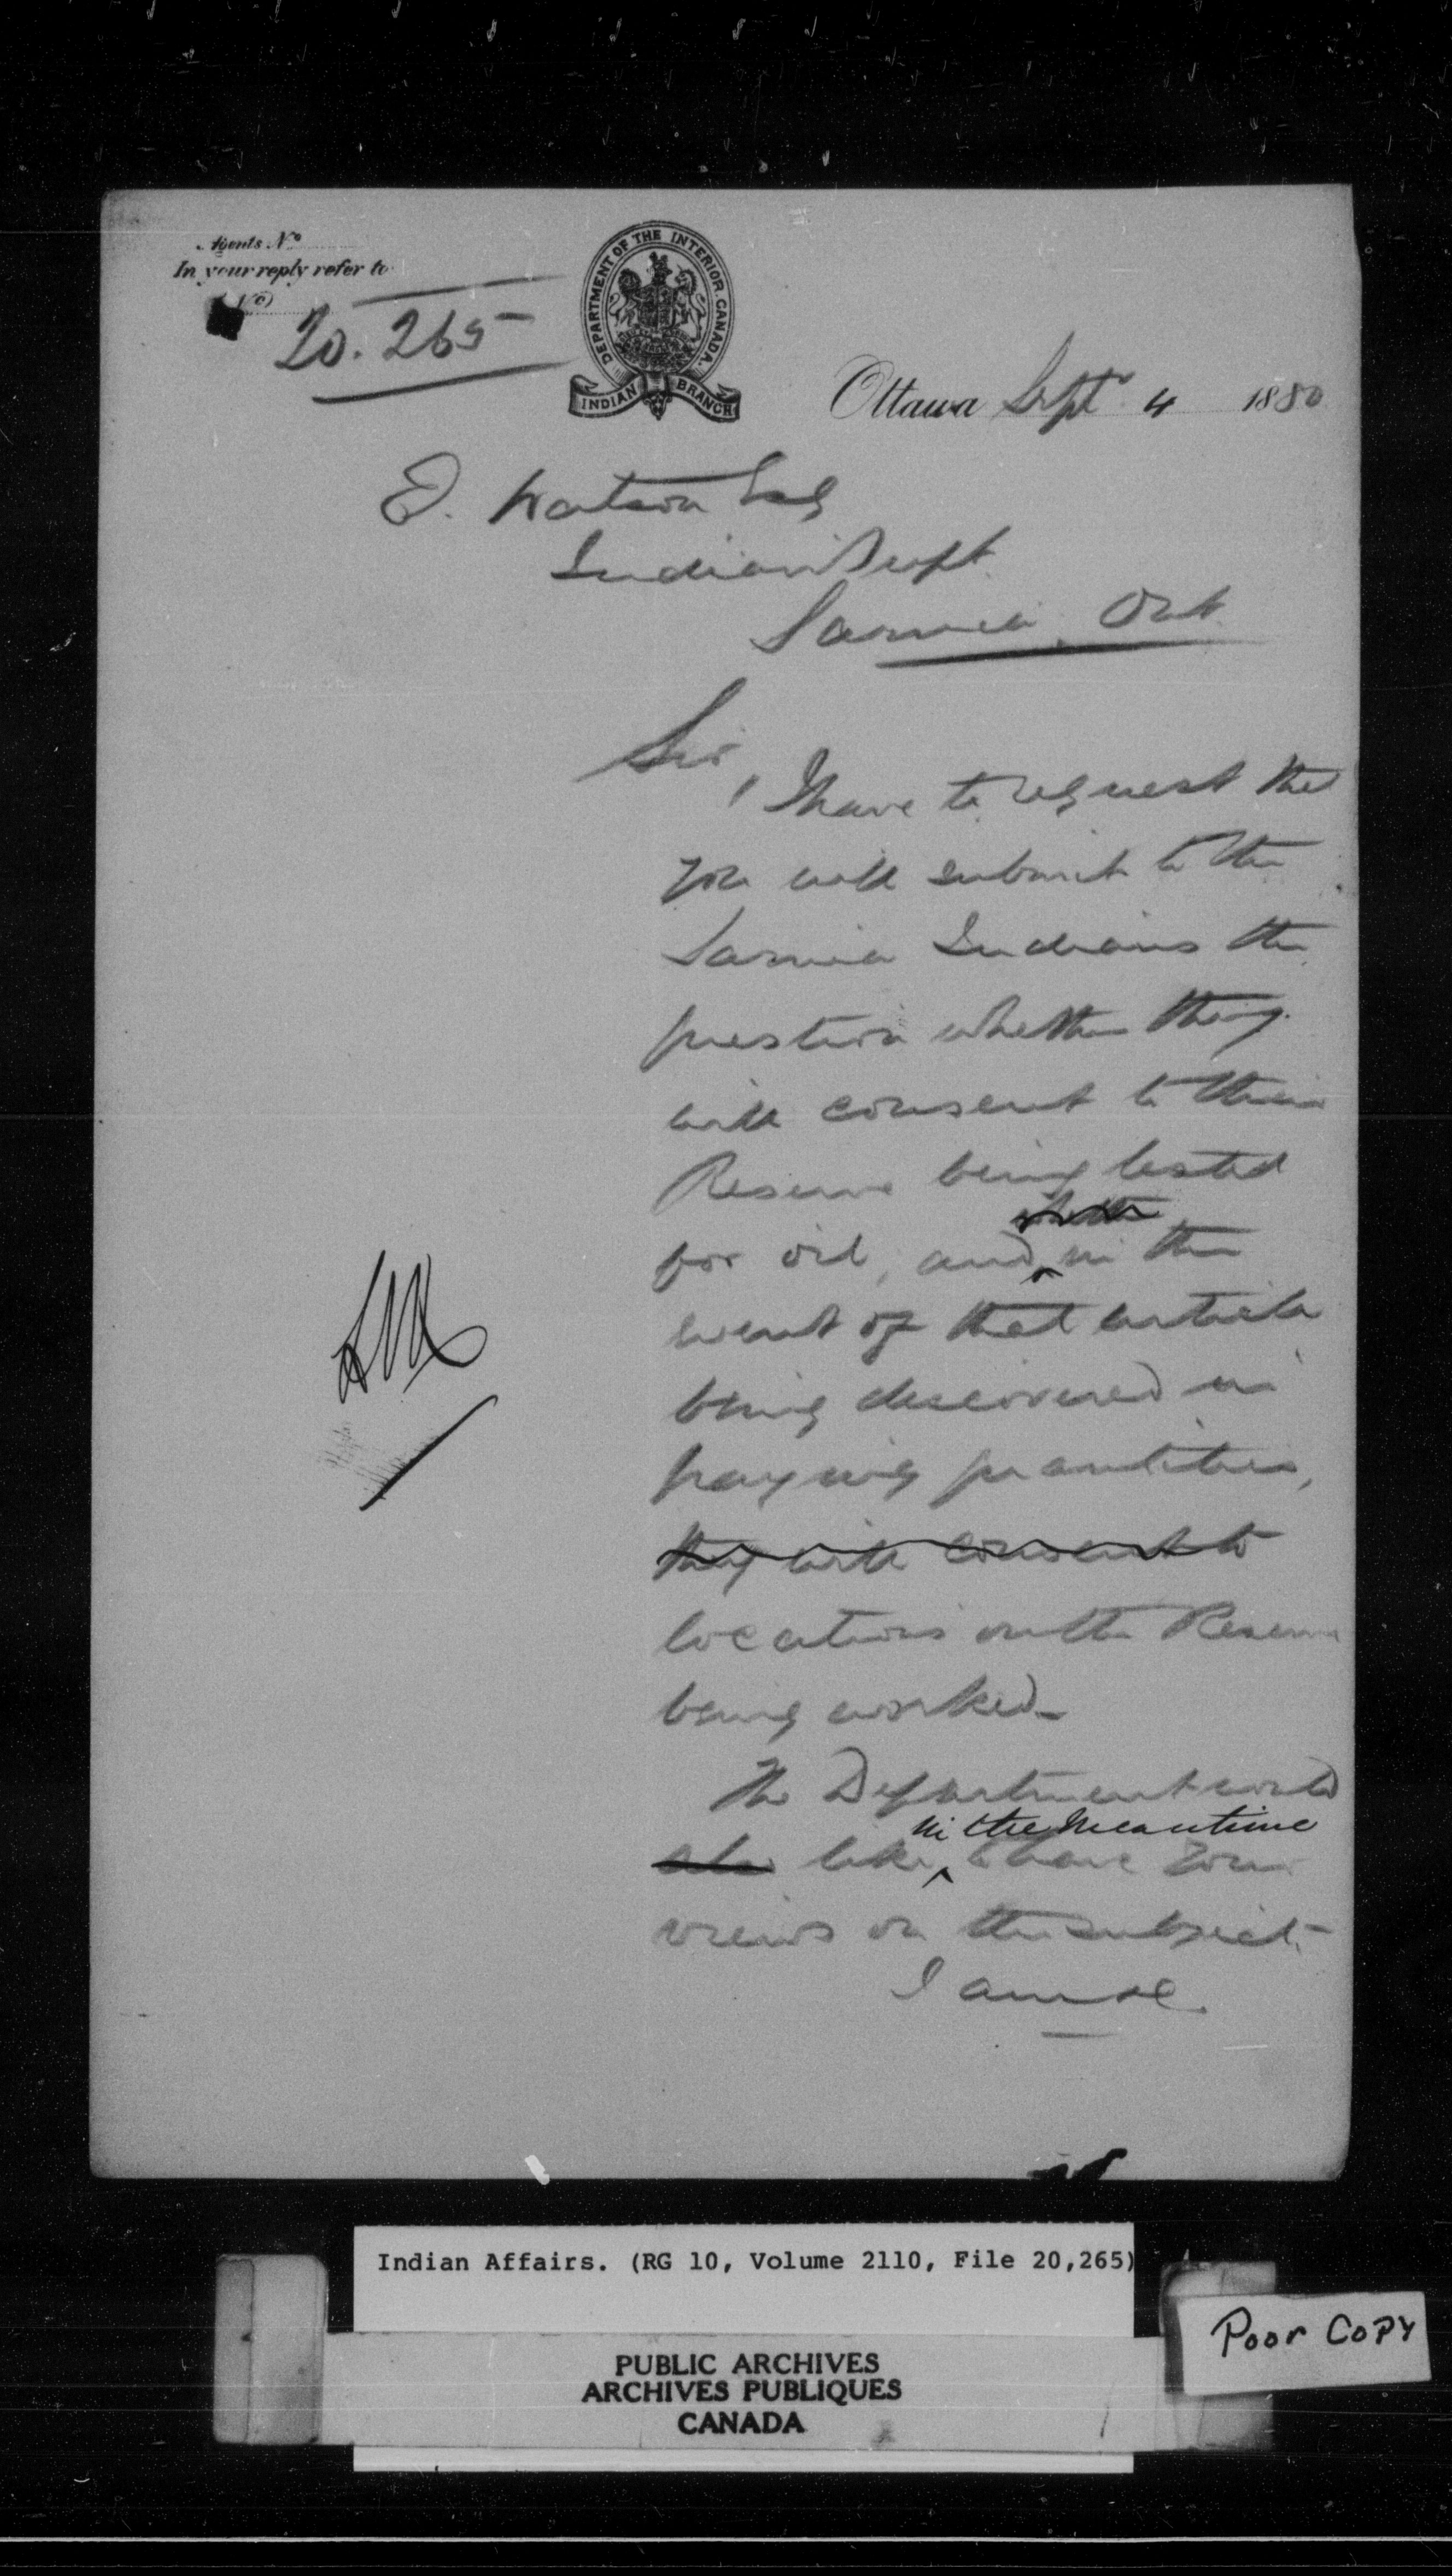 Agents No
In your reply refer to
No
20.265
DEPARTMENT OF THE INTERIOR. CANADA.
INDIAN BRANCH
Ottawa Sept 4 1880
E. Watson Esq
Indian Supt
Sarnia, Ont
Sir,
I have to request that
you will submit to the
Sarnia Indians the
question whether they
will consent to their
Reserve being tested
whether
for oil, and in the
event of that article
being discovered in
paying quantities,
they will consent to
locations on the Reserve
being worked.
The Department would
in the meantime
also like to have your
views on the subject.
I am &c.
Indian Affairs. (RG 10, Volume 2110, File 20,265)
PUBLIC ARCHIVES
ARCHIVES PUBLIQUES
CANADA
Poor Copy